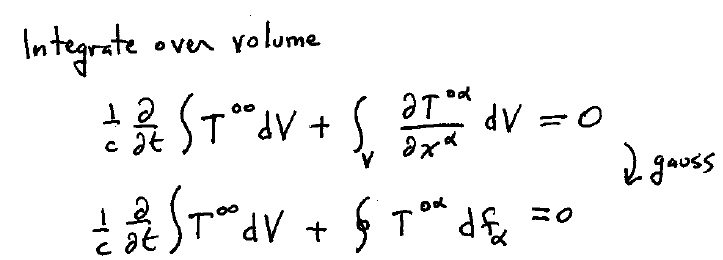 Integrate over volume
1/c ∂/∂t ∫ T⁰⁰ dV + ∫_V ∂T⁰ᵅ/∂xᵅ dV = 0
↓ gauss
1/c ∂/∂t ∫ T⁰⁰ dV + ∮ T⁰ᵅ df_α = 0